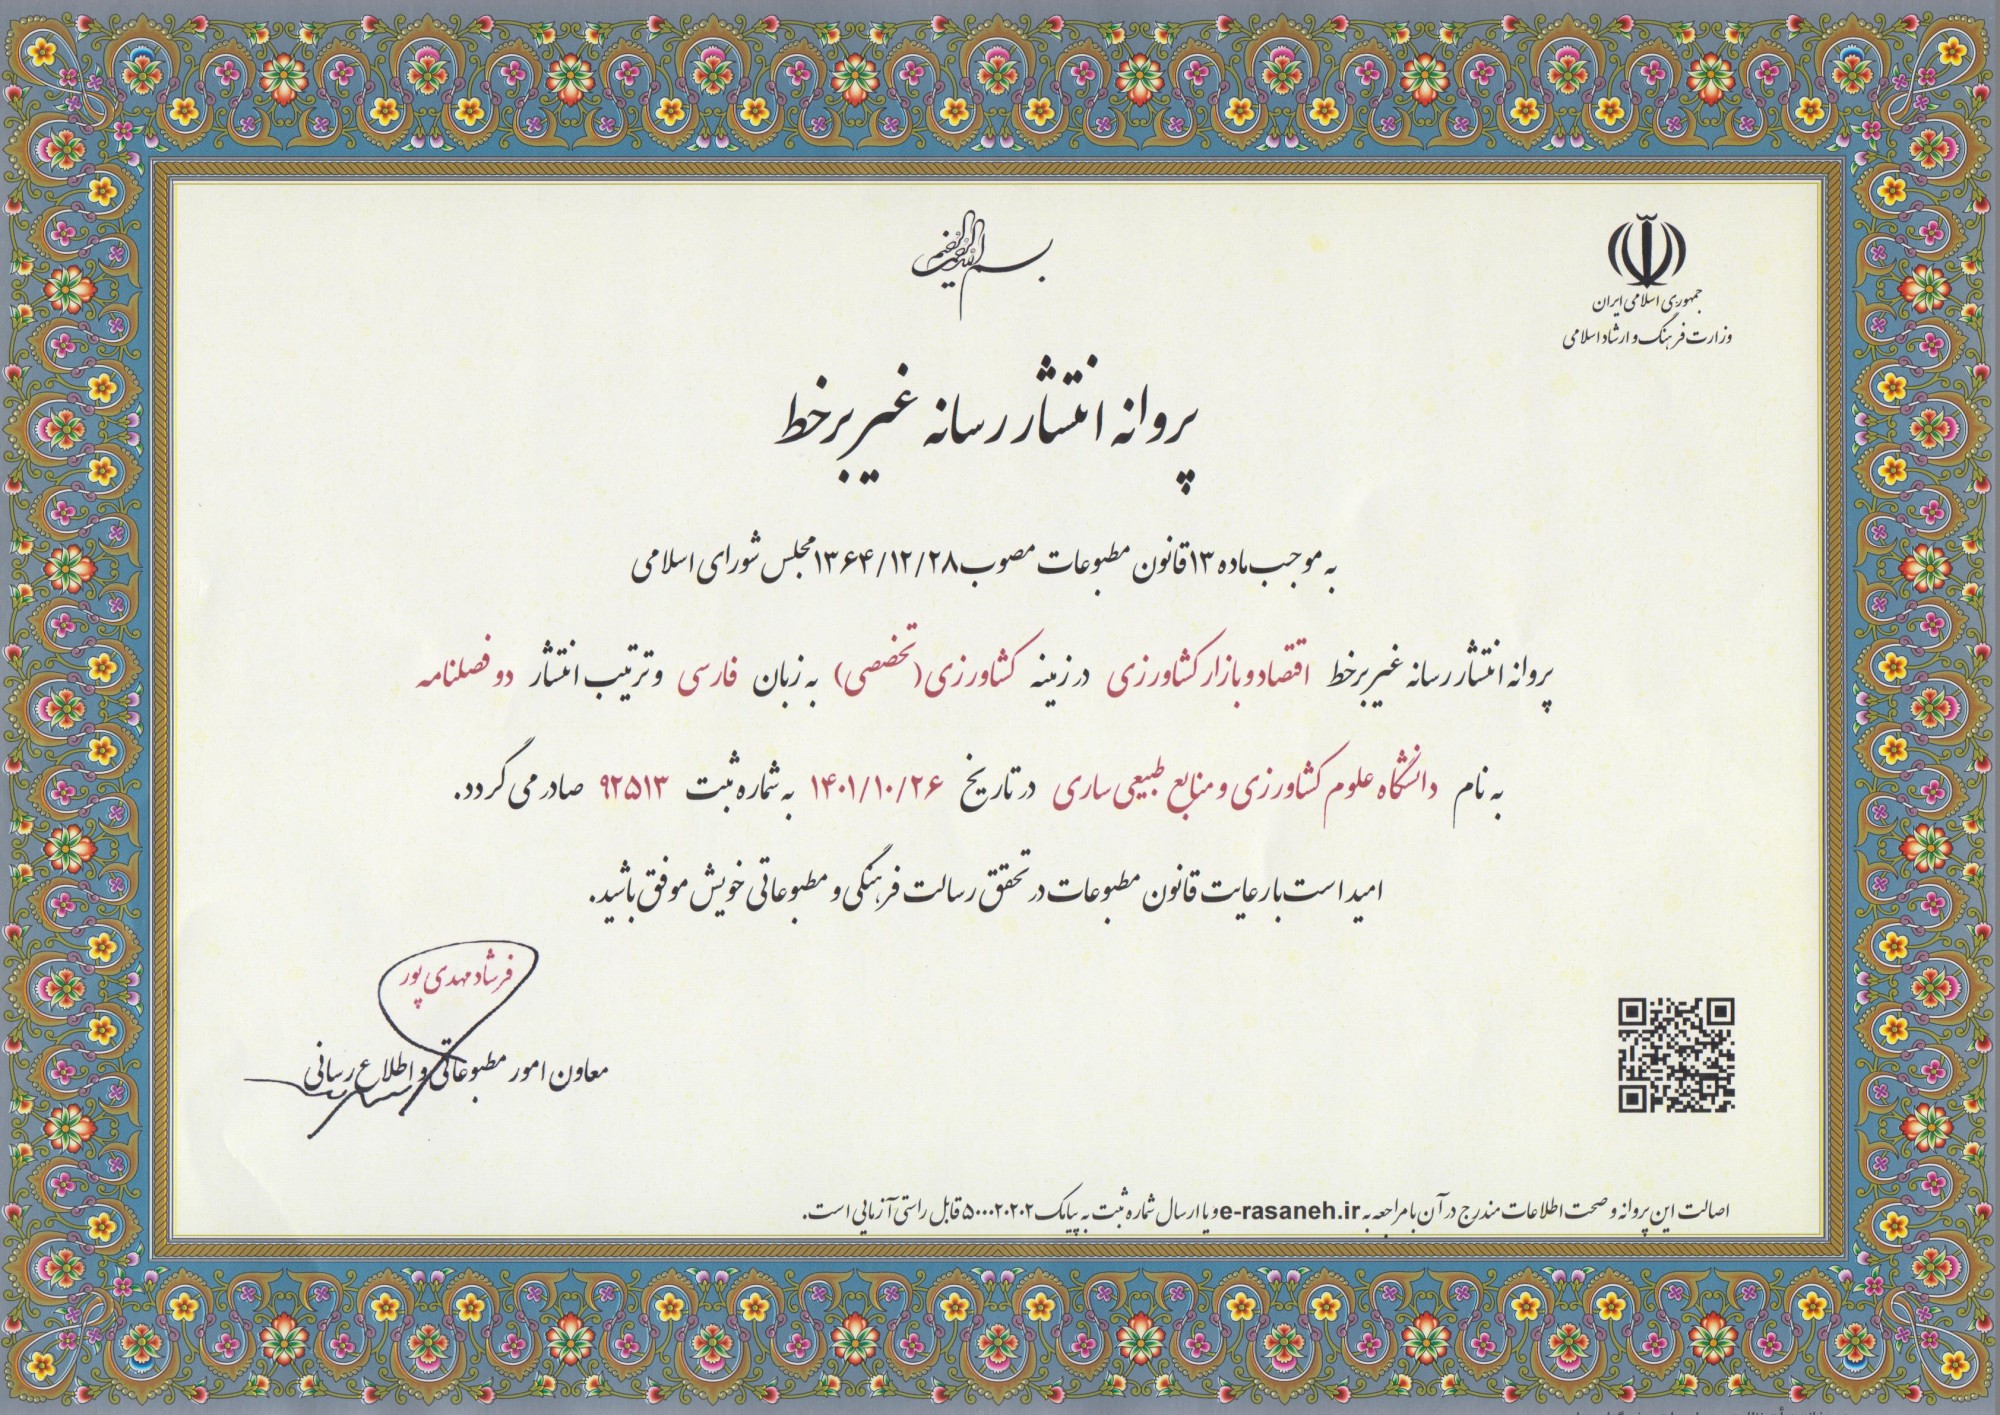 بسم الله الرحمن الرحیم
جمهوری اسلامی ایران
وزارت فرهنگ و ارشاد اسلامی
پروانه انتشار رسانه غیر برخط
به موجب ماده ۱۳ قانون مطبوعات مصوب ۱۳۶۴/۱۲/۲۸ مجلس شورای اسلامی
پروانه انتشار رسانه غیر برخط اقتصاد و بازار کشاورزی در زمینه کشاورزی (تخصصی) به زبان فارسی و ترتیب انتشار دو فصلنامه
به نام دانشگاه علوم کشاورزی و منابع طبیعی ساری در تاریخ ۱۴۰۱/۱۰/۲۶ به شماره ثبت ۹۲۵۱۳ صادر می گردد.
امید است با رعایت قانون مطبوعات در تحقق رسالت فرهنگی و مطبوعاتی خویش موفق باشید.
فرشاد مهدی پور
معاون امور مطبوعاتی و اطلاع رسانی
اصالت این پروانه و صحت اطلاعات مندرج در آن با مراجعه به e-rasaneh.ir و یا ارسال شماره ثبت به پیامک ۵۰۰۰۲۰۲۰۲ قابل راستی آزمایی است.